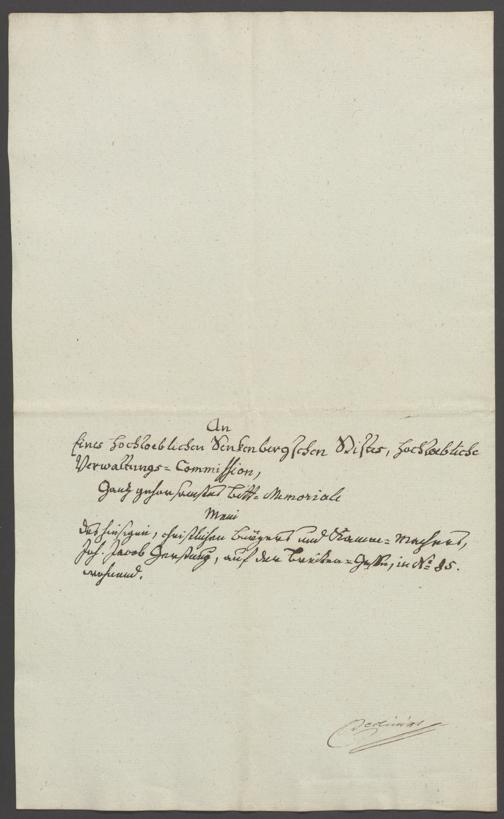 An
Eines hochloeblichen Senkenbergschen Stiftes, hochloebliche
Verwaltungs=Commission,
Ganz gehorsamstes Bitt=Memoriale
Mein
des hiesigen, christlichen Bürgers und Kamm=Machers,
Joh. Jacob, auf der Breiten=Gasse, in No. 85.
wohnend.